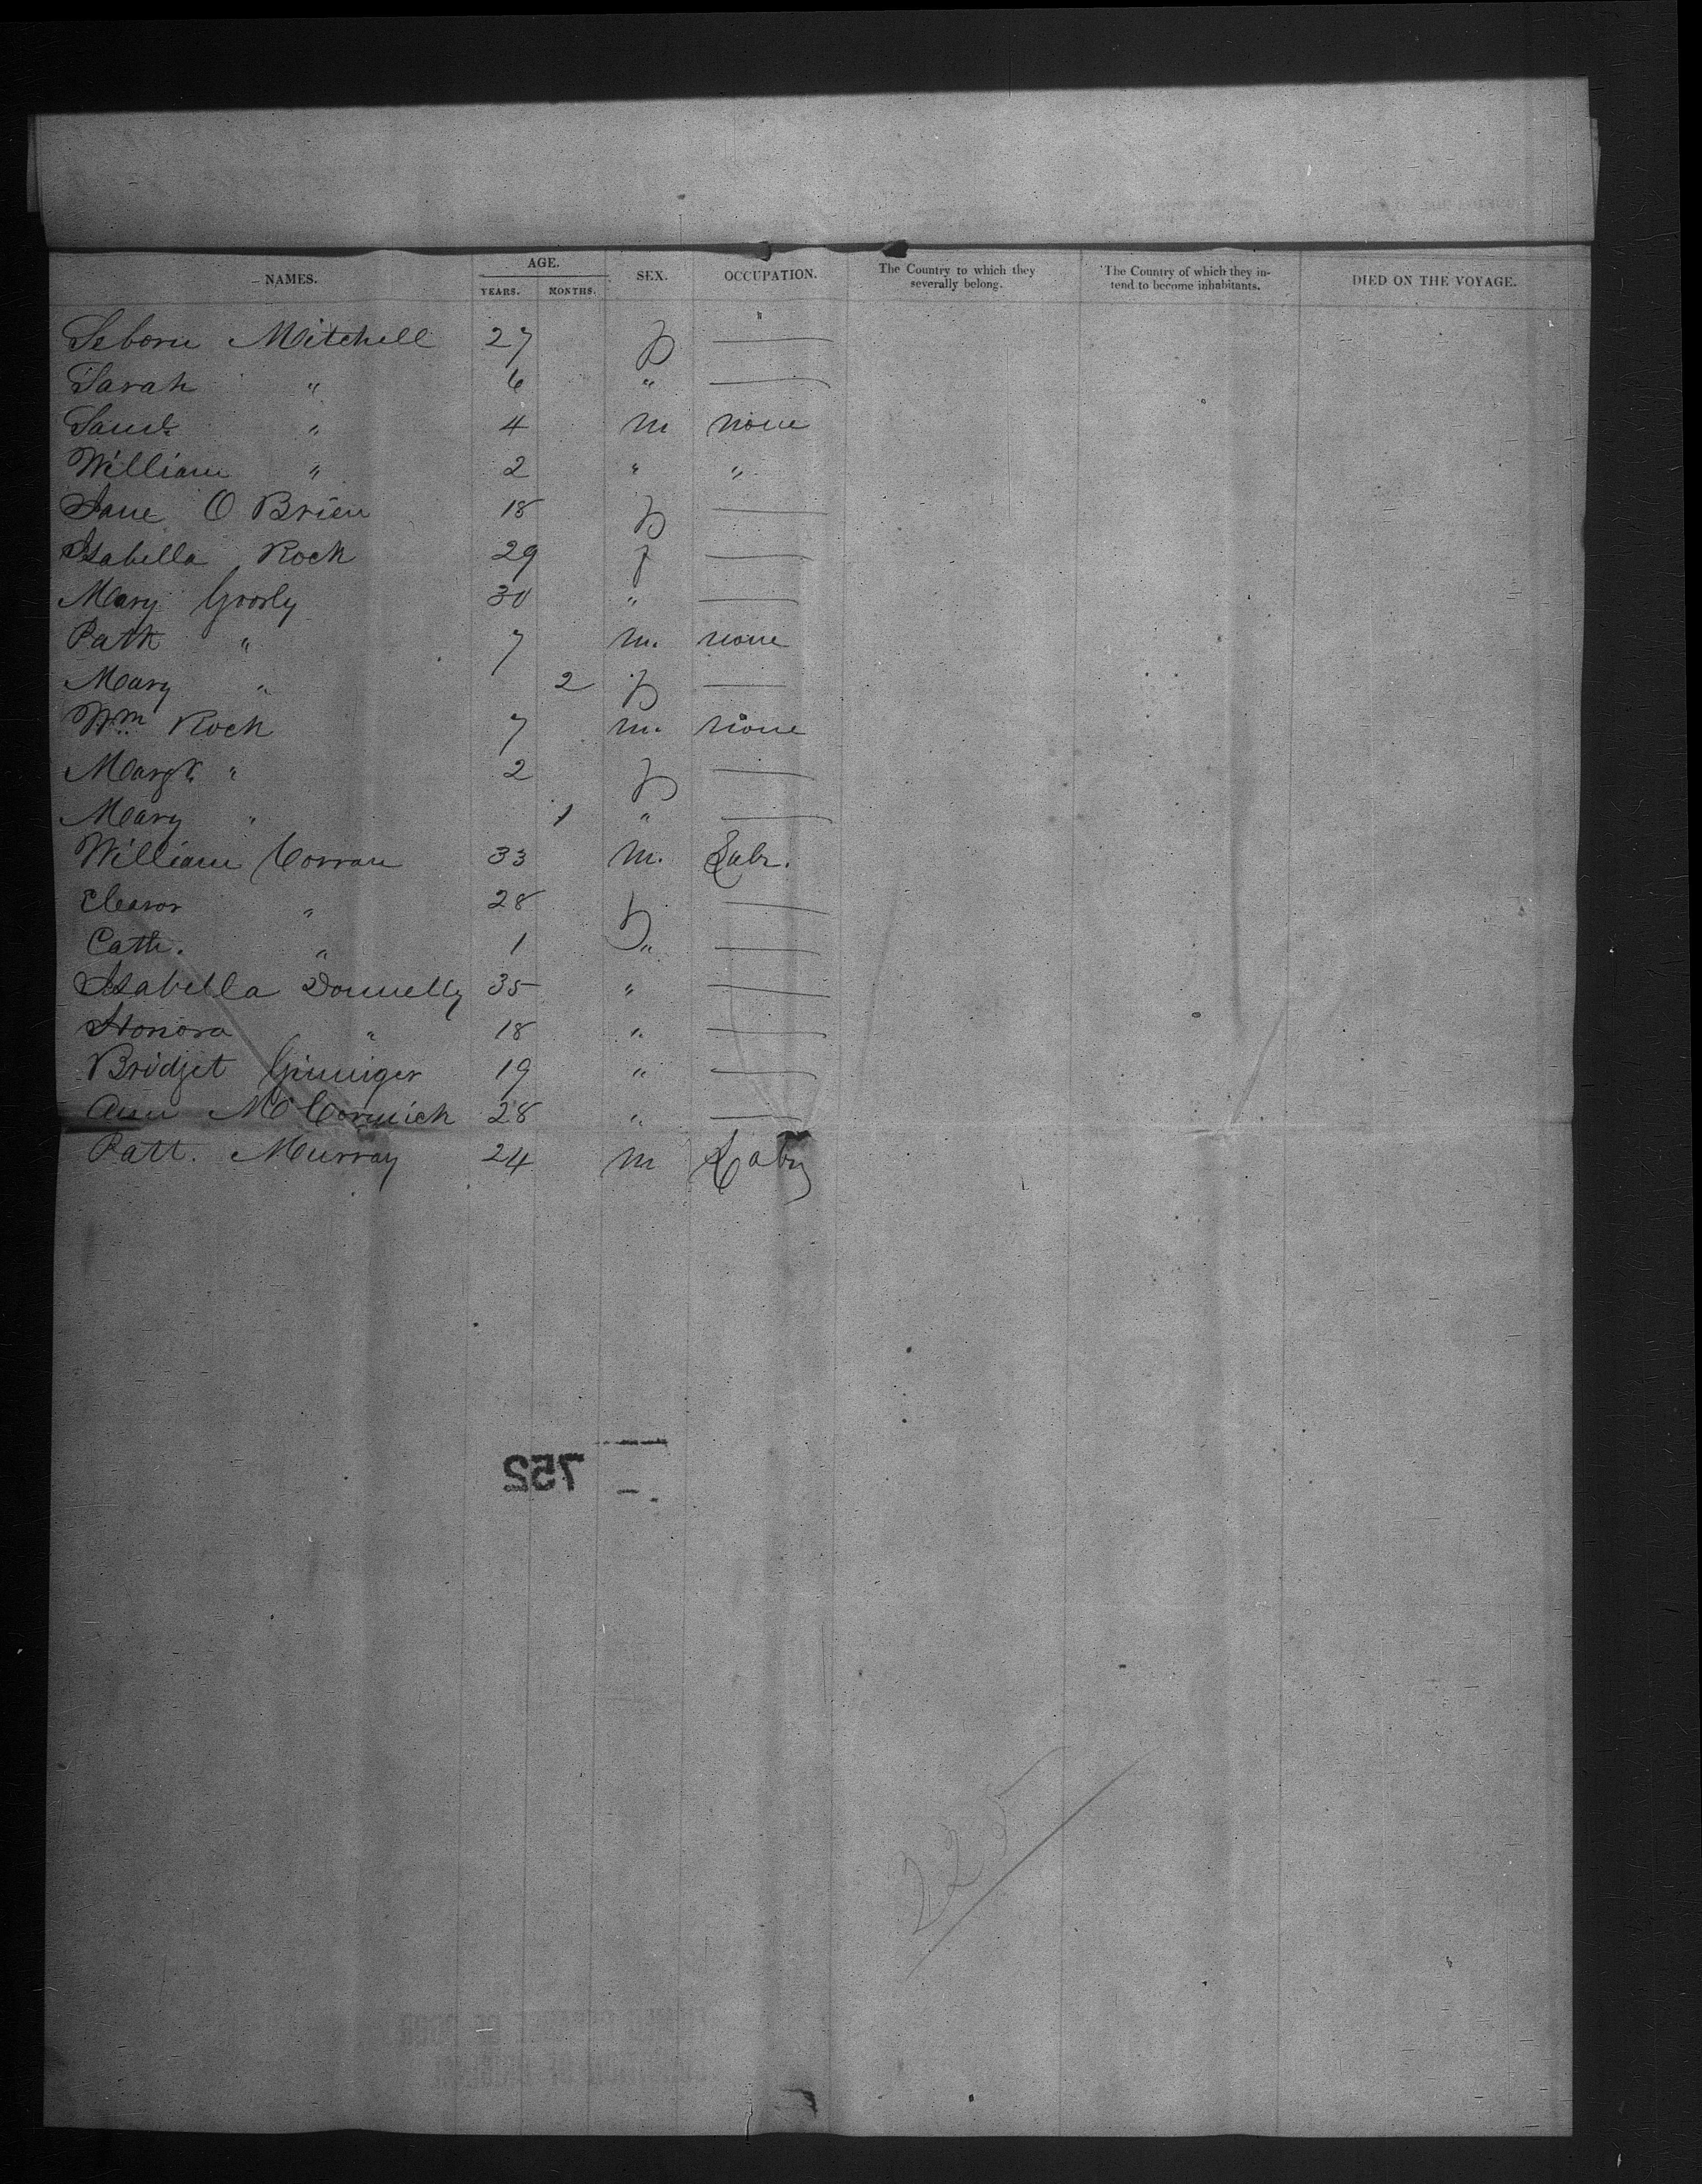 NAMES. AGE. SEX. OCCUPATION. The Country to which they severally belong. The Country of which they intend to become inhabitants. DIED ON THE VOYAGE.
YEARS. MONTHS.
Seborn Mitchell 27 f —
Sarah " 6 " —
Saml. " 4 m none
William " 2 " "
Jane O Brien 18 f —
Isabella Rock 29 f —
Mary 30 " —
Patk " 7 m. none
Mary " 2 f —
Wm. Rock 7 m. none
Margt. " 2 f —
Mary " 1 " —
William Corran 33 m. Labr.
Eleanor " 28 f —
Cath. " 1 " —
Isabella Donnelly 35 " —
Honora " 18 " —
Bridget 19 " —
Ann McCormick 28 " —
Patt. Murray 24 m Labr
752
225